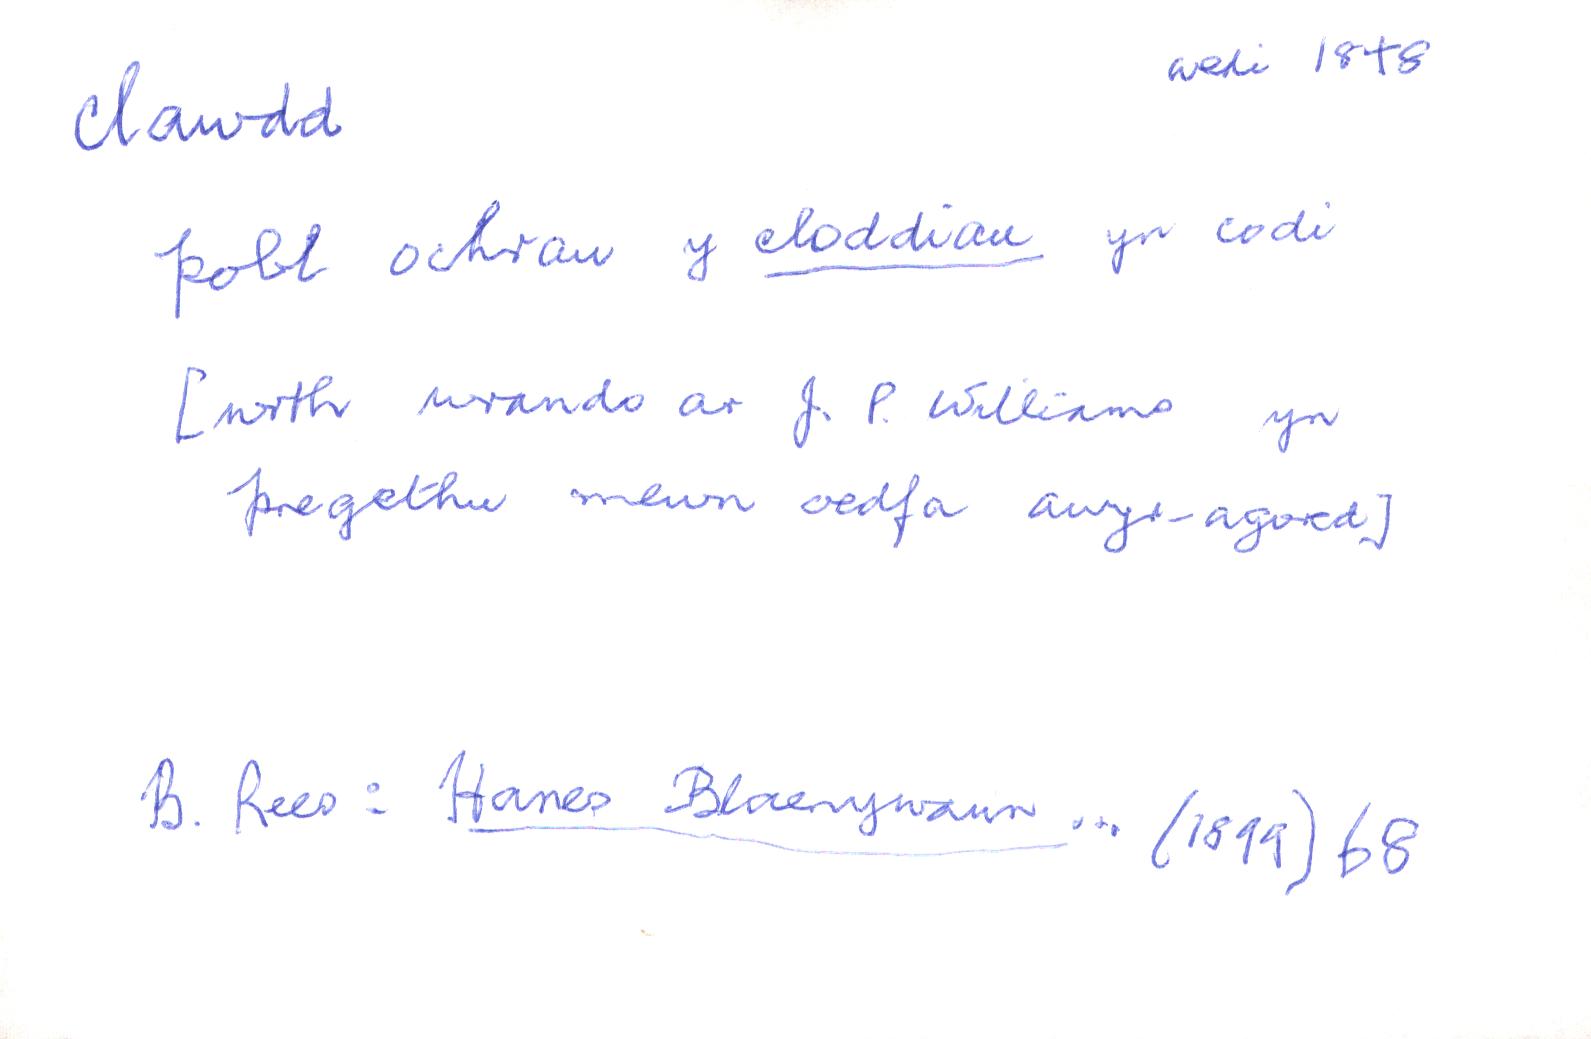 wedi 1848
clawdd
pobl ochrau y cloddiau yn codi
[wrth wrando ar J. P. Williams yn
pregethu mewn oedfa awyr-agored]
B. Rees: Hanes Blaenywaun ... (1899) 68